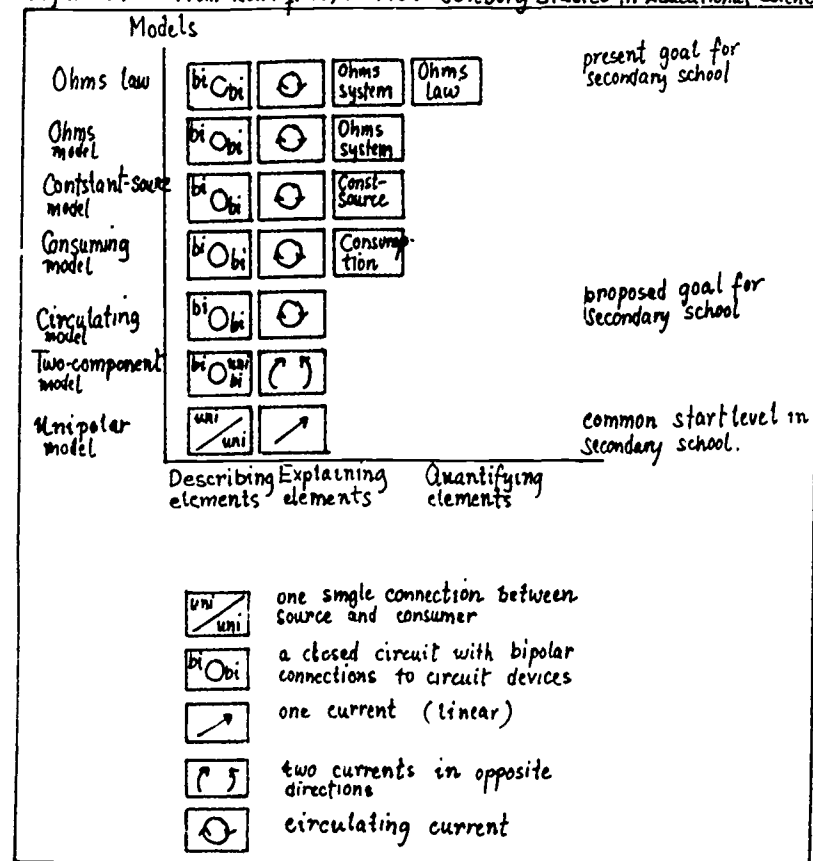 Models
Ohms law
bi bi
Ohms system
Ohms law
present goal for secondary school
Ohms model
bi bi
Ohms system
Contstant-source model
bi bi
Const-Source
Consuming model
bi bi
Consump-tion
Circulating model
bi bi
proposed goal for secondary school
Two-component model
bi uni bi
Unipolar model
uni uni
common start level in secondary school.
Describing elements
Explaining elements
Quantifying elements
uni uni
one single connection between
source and consumer
bi bi
a closed circuit with bipolar
connections to circuit devices
one current (linear)
two currents in opposite
directions
circulating current